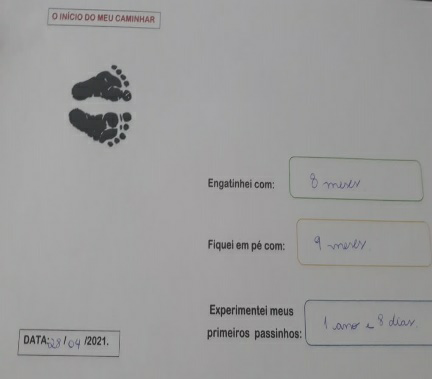 O INÍCIO DO MEU CAMINHAR
Engatinhei com: 8 meses
Fiquei em pé com: 9 meses
Experimentei meus
primeiros passinhos: 1 ano e 8 dias.
DATA: 28/04/2021.